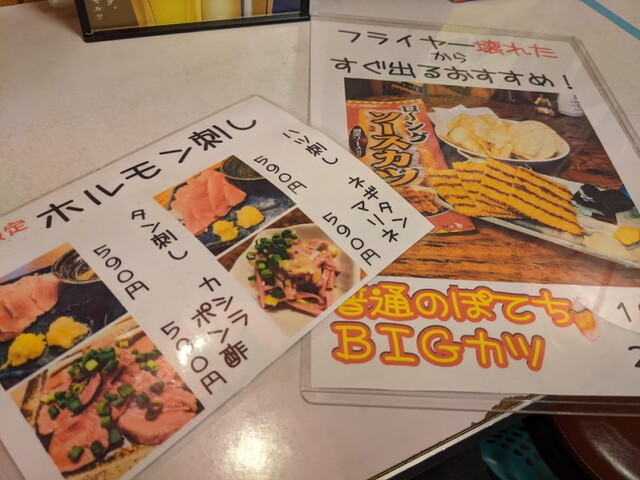 ホルモン刺し
ハツ刺し
590円
ネギタン
マリネ
590円
タン刺し
590円
カシラ
ポン酢
590円
フライヤー壊れた
から
すぐ出るおすすめ!
ローング
ソースカツ
普通のぽてち
BIGカツ